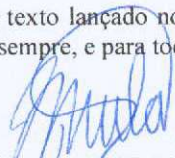 texto lançado no
sempre, e para to